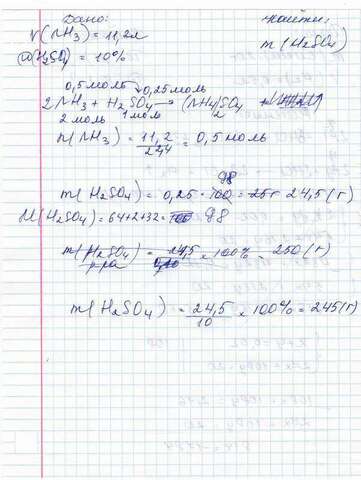 Дано: найти:
V(NH3) = 11,2л m(H2SO4)
ω(H2SO4) = 10%
0,5 моль 0,25 моль
2NH3 + H2SO4 → (NH4)2SO4
2 моль 1 моль
n(NH3) = 11,2/22,4 = 0,5 моль
98
m(H2SO4) = 0,25 · 100 = 25г 24,5 (г)
M(H2SO4) = 64+2+32 = 98
m(H2SO4) = 24,5 × 100% = 250 (г)
р-ра
m(H2SO4) = 24,5/10 × 100% = 245 (г)